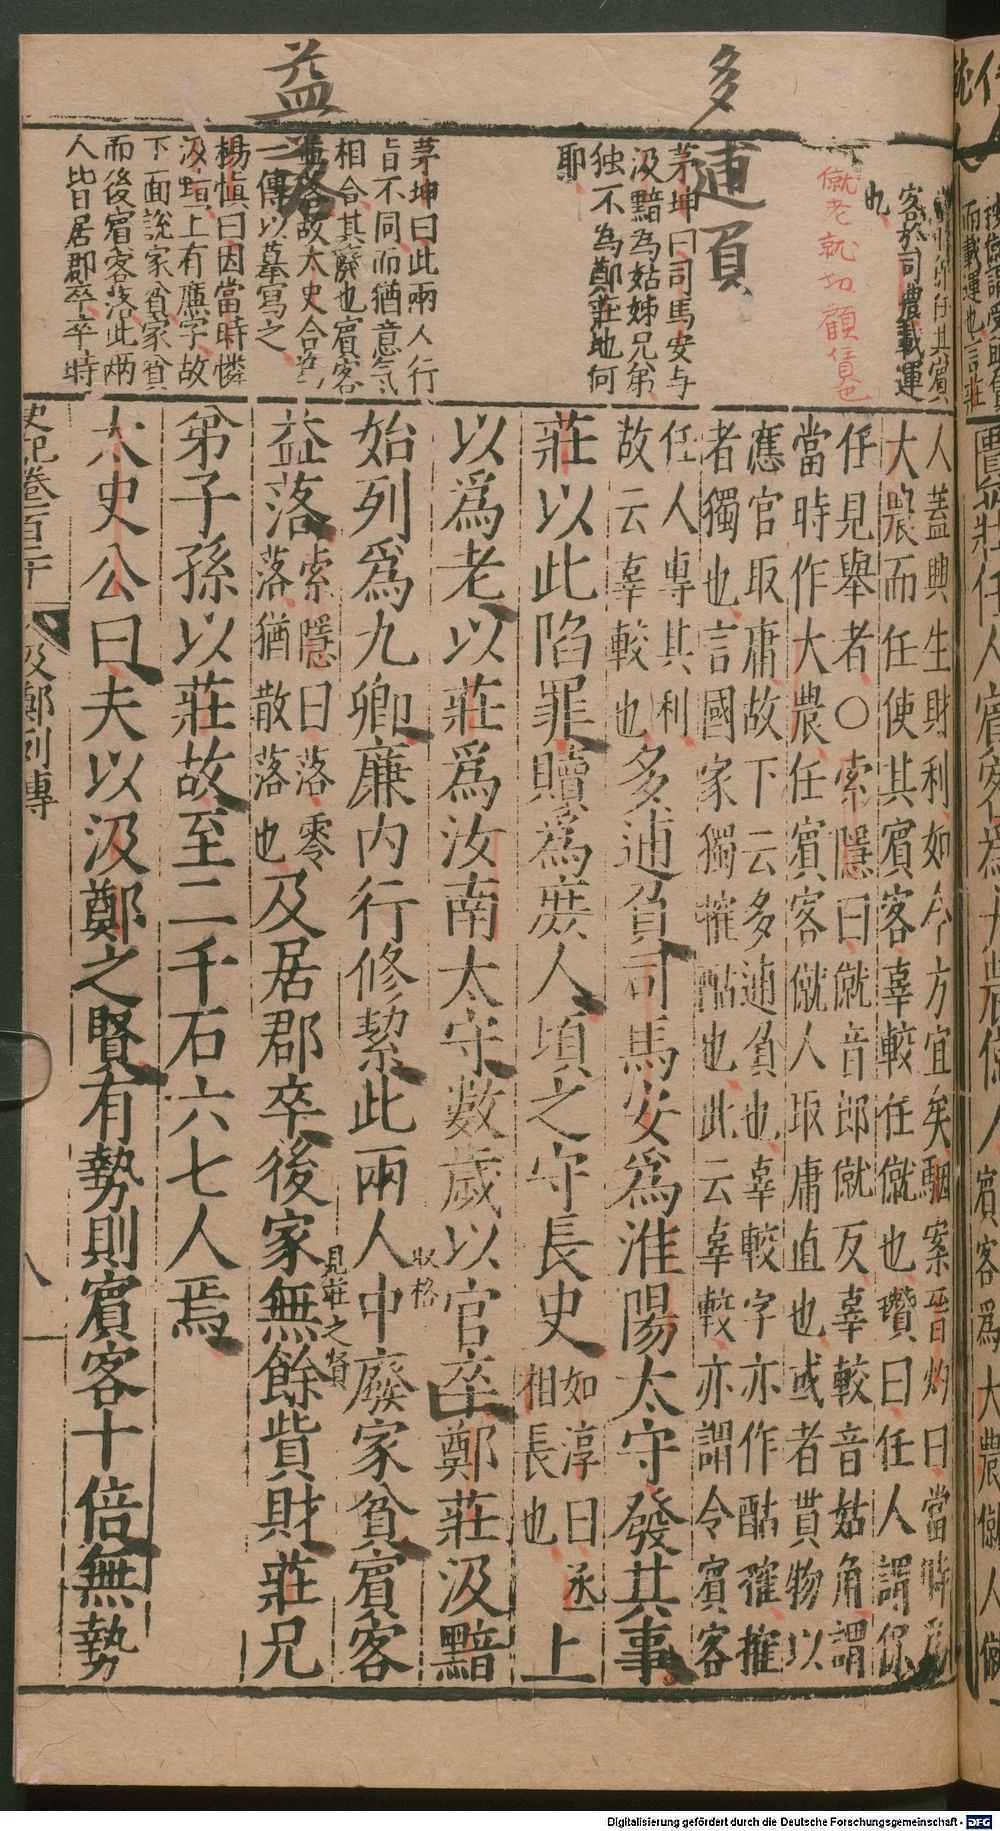 多
益
逋負
益落
客於司農載運
也
僦老就切顧賃也
茅坤曰司馬安与
汲黯為姑姊兄弟
独不為鄭莊地何
耶
茅坤曰此兩人行
旨不同而猶意氣
相合其廢也賓客
益落故太史合為
一傳以摹寫之
楊慎曰因當時憐
汲
上有廉字故
下面說家貧家貧
而後賓客落此兩
人皆居郡卒卒時
人蓋興生財利如今方宜矣駰案晉灼曰當時為
大農而任使其賓客辜較任僦也瓚曰任人謂保
任見舉者○索隱曰僦音郎僦反辜較音姑角謂
當時作大農任賓客僦人取庸直也或者貰物以
應官取庸故下云多逋負也辜較字亦作酤搉搉
者獨也言國家獨搉酤也此云辜較亦謂令賓客
任人專其利
故云辜較也
多逋負司馬安為淮陽太守發其事
莊以此陷罪贖為庶人頃之守長史
如淳曰丞
相長也
上
以為老以莊為汝南太守數歲以官卒鄭莊汲黯
始列為九卿廉內行修絜此兩人中廢家貧賓客
收格
益落
索隱曰落零
落猶散落也
及居郡卒後家無餘貲財莊兄
見莊之賢
弟子孫以莊故至二千石六七人焉
太史公曰夫以汲鄭之賢有勢則賓客十倍無勢
史記卷一百二十
汲鄭列傳
八
Digitalisierung gefördert durch die Deutsche Forschungsgemeinschaft - DFG